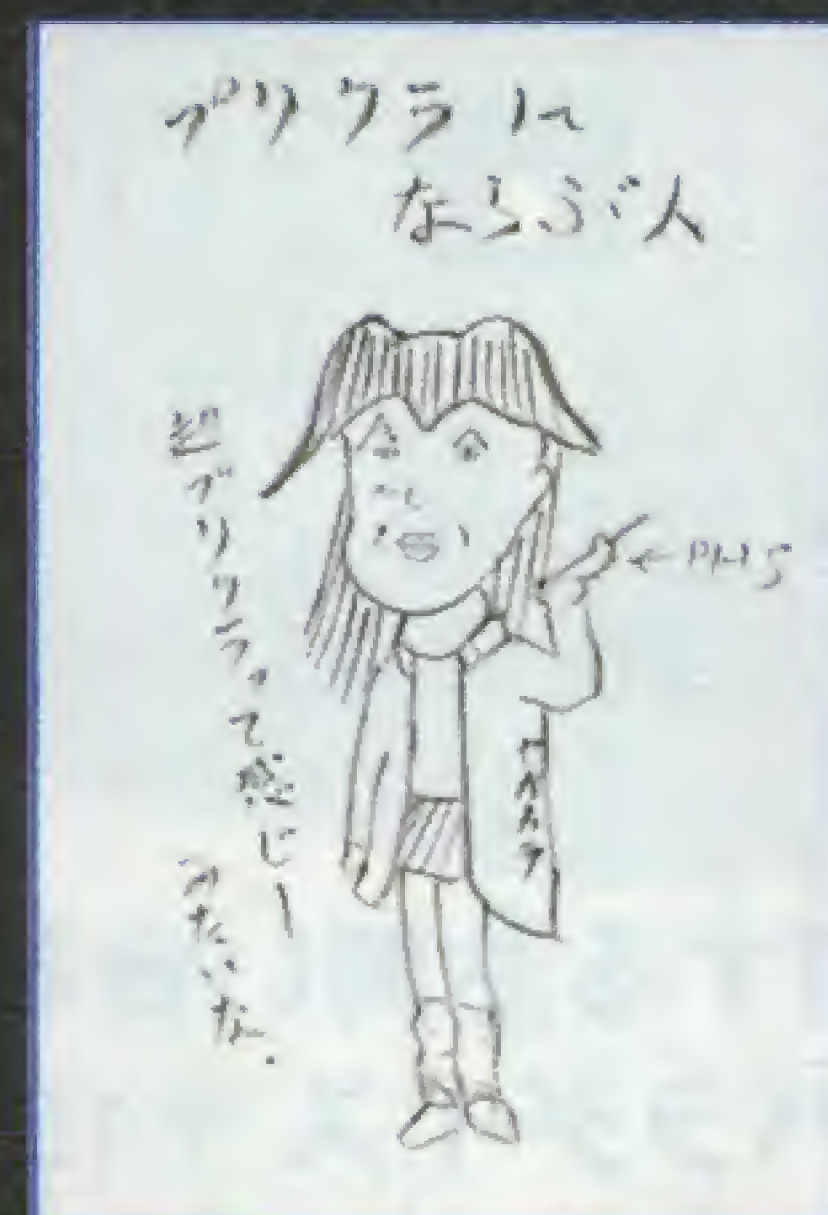 プリクラに
ならぶ人
超プリクラって感じー
みたいな.
← PHS